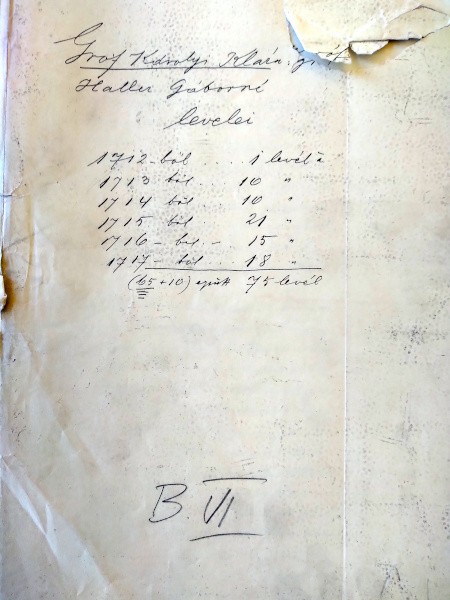 Gróf Károlyi Klára, gróf
Haller Gáborné
levelei
1712-ből .... 1 levél
1713 ból .. 10 "
1714 ből .. 10 "
1715 ból .. 21 "
1716- ból -. 15 "
1717- ből .. 18 "
(65+10) együtt 75 levél
B. VI